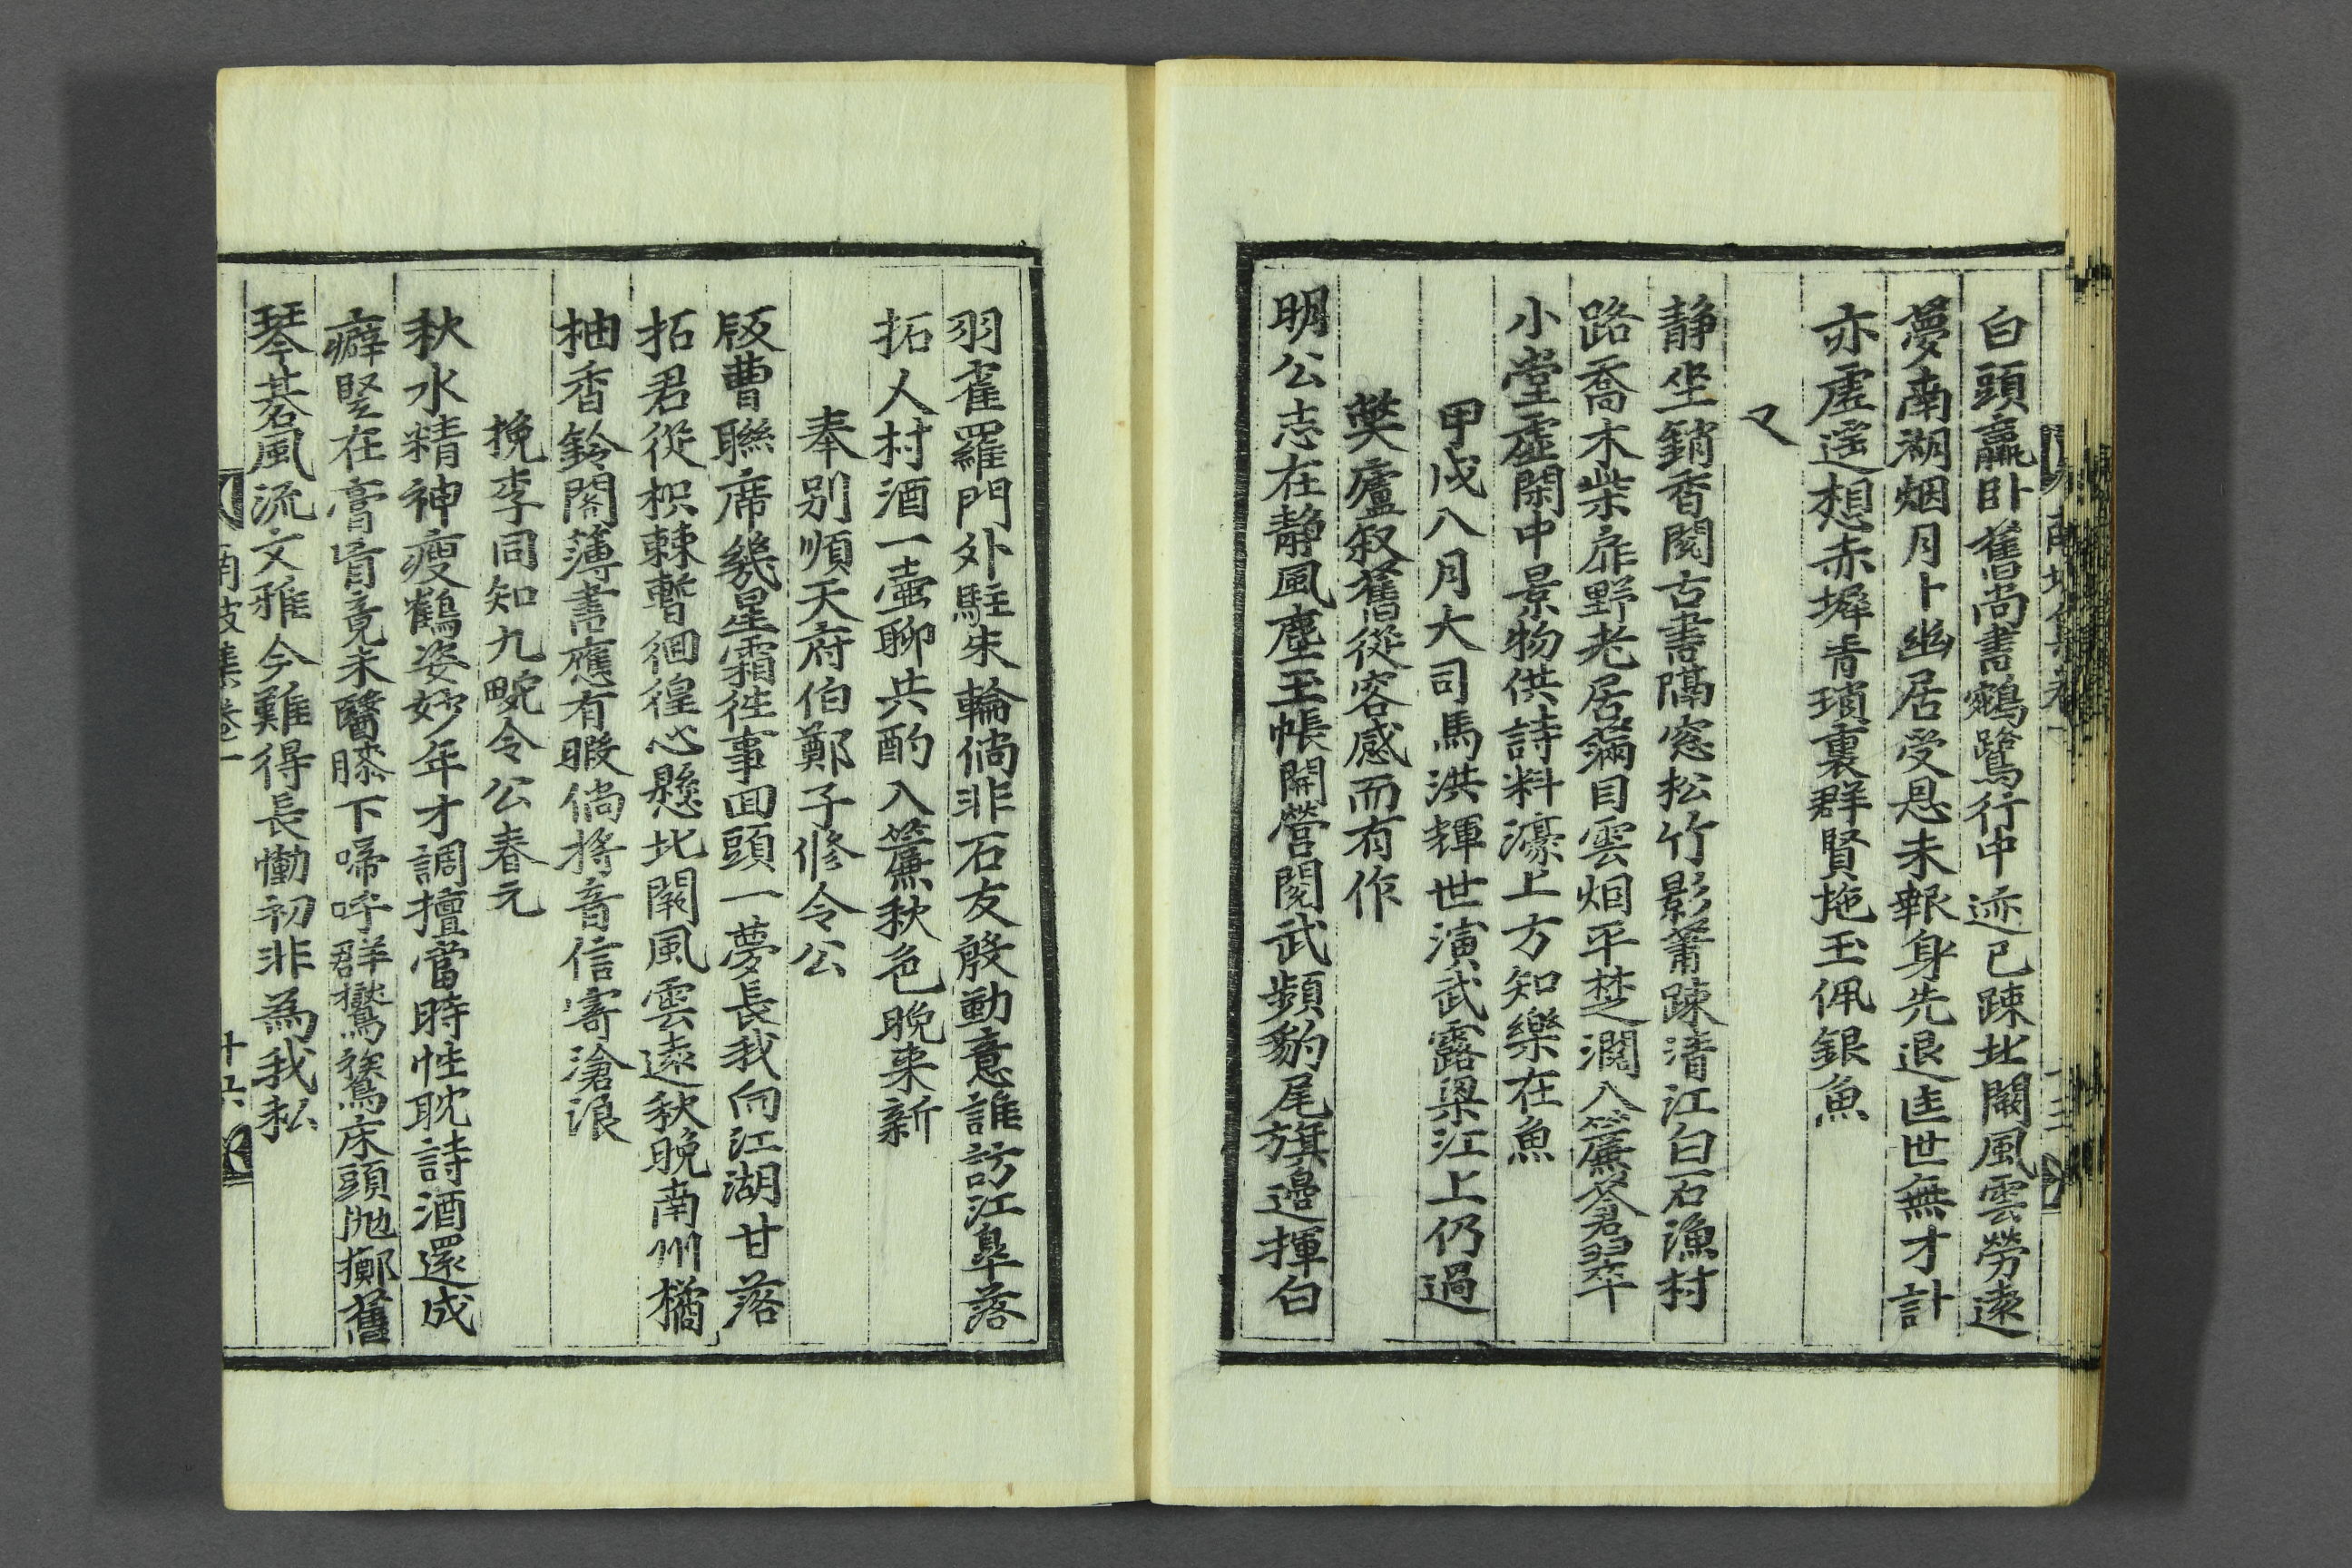 白頭贏卧舊尚書鵷鷺行中迹已踈北闕風雲勞遠
夢南湖烟月卜幽居受恩未報身先退匡世無才計
亦虛遥想赤墀青瑣裏群賢拖玉佩銀魚
又
静坐銷香閱古書隔窓松竹影蕭踈清江白石漁村
路喬木柴扉野老居滿目雲烟平楚濶入簾蒼翠
小堂虛閑中景物供詩料濠上方知樂在魚
甲戌八月大司馬洪輝世演武露梁江上仍過
獘廬叙舊從容感而有作
明公志在静風塵玉帳開營閱武頻豹尾旗邉揮白
羽雀羅門外駐朱輪倘非石友慇勤意誰訪江臯落
拓人村酒一壷聊共酌入簾秋色晩来新
奉别順天府伯鄭子修令公
版曹聯席幾星霜徃事回頭一夢長我向江湖甘落
拓君從枳棘暫徊徨心懸北闕風雲遠秋晩南州橘
柚香鈴閣薄書應有暇倘將音信寄滄浪
挽李同知九畹令公春元
秋水精神瘦鶴姿妙年才調擅當時性耽詩酒還成
癖竪在膏肓竟未醫膝下啼呼群鸑鷟床頭抛擲舊
琴碁風流文雅今難得長慟初非為我私
南坡集卷一
十六